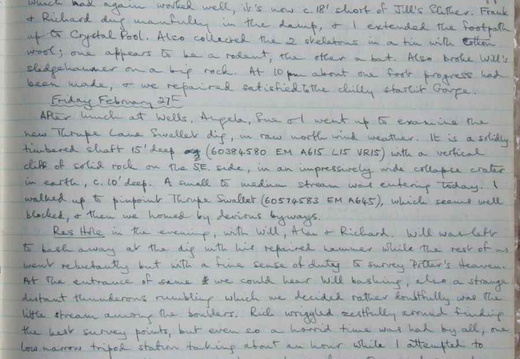 which had again worked well, it's now c.18' short of Jill's Slither. Frank
& Richard dug manfully in the damp, & I extended the footpath
up to Crystal Pool. Also collected the 2 skeletons in a tin with cotton
wool; one appears to be a rodent, the other a bat. Also broke Wil's
sledgehammer on a big rock. At 10 pm about one foot progress had
been made, & we repaired satisfied to the chilly starlit Gorge.
Friday February 27th
After lunch at Wells, Angela, Sue & I went up to examine the
new Thrupe Lane Swallet dig, in raw north wind weather. It is a solidly
timbered shaft 15' deep (60384580 EM A615 L15 VR15) with a vertical
cliff of solid rock on the SE. side, in an impressively wide collapse crater
in earth, c. 10' deep. A small to medium stream was entering today. I
walked up to pinpoint Thrupe Swallet (60574583 EM A645), which seems well
blocked, & then we homed by devious byways.
Res Hole in the evening, with Will, Alan & Richard. Will was left
to bash away at the dig with his repaired hammer while the rest of us
went reluctantly but with a fine sense of duty to survey Potter's Heaven.
At the entrance of same we could hear Will bashing, also a strange
distant thunderous rumbling which we decided rather doubtfully was the
little stream among the boulders. Rich wriggled zestfully around finding
the best survey points, but even so a horrid time was had by all, one
low narrow tripod station taking about an hour while I attempted to